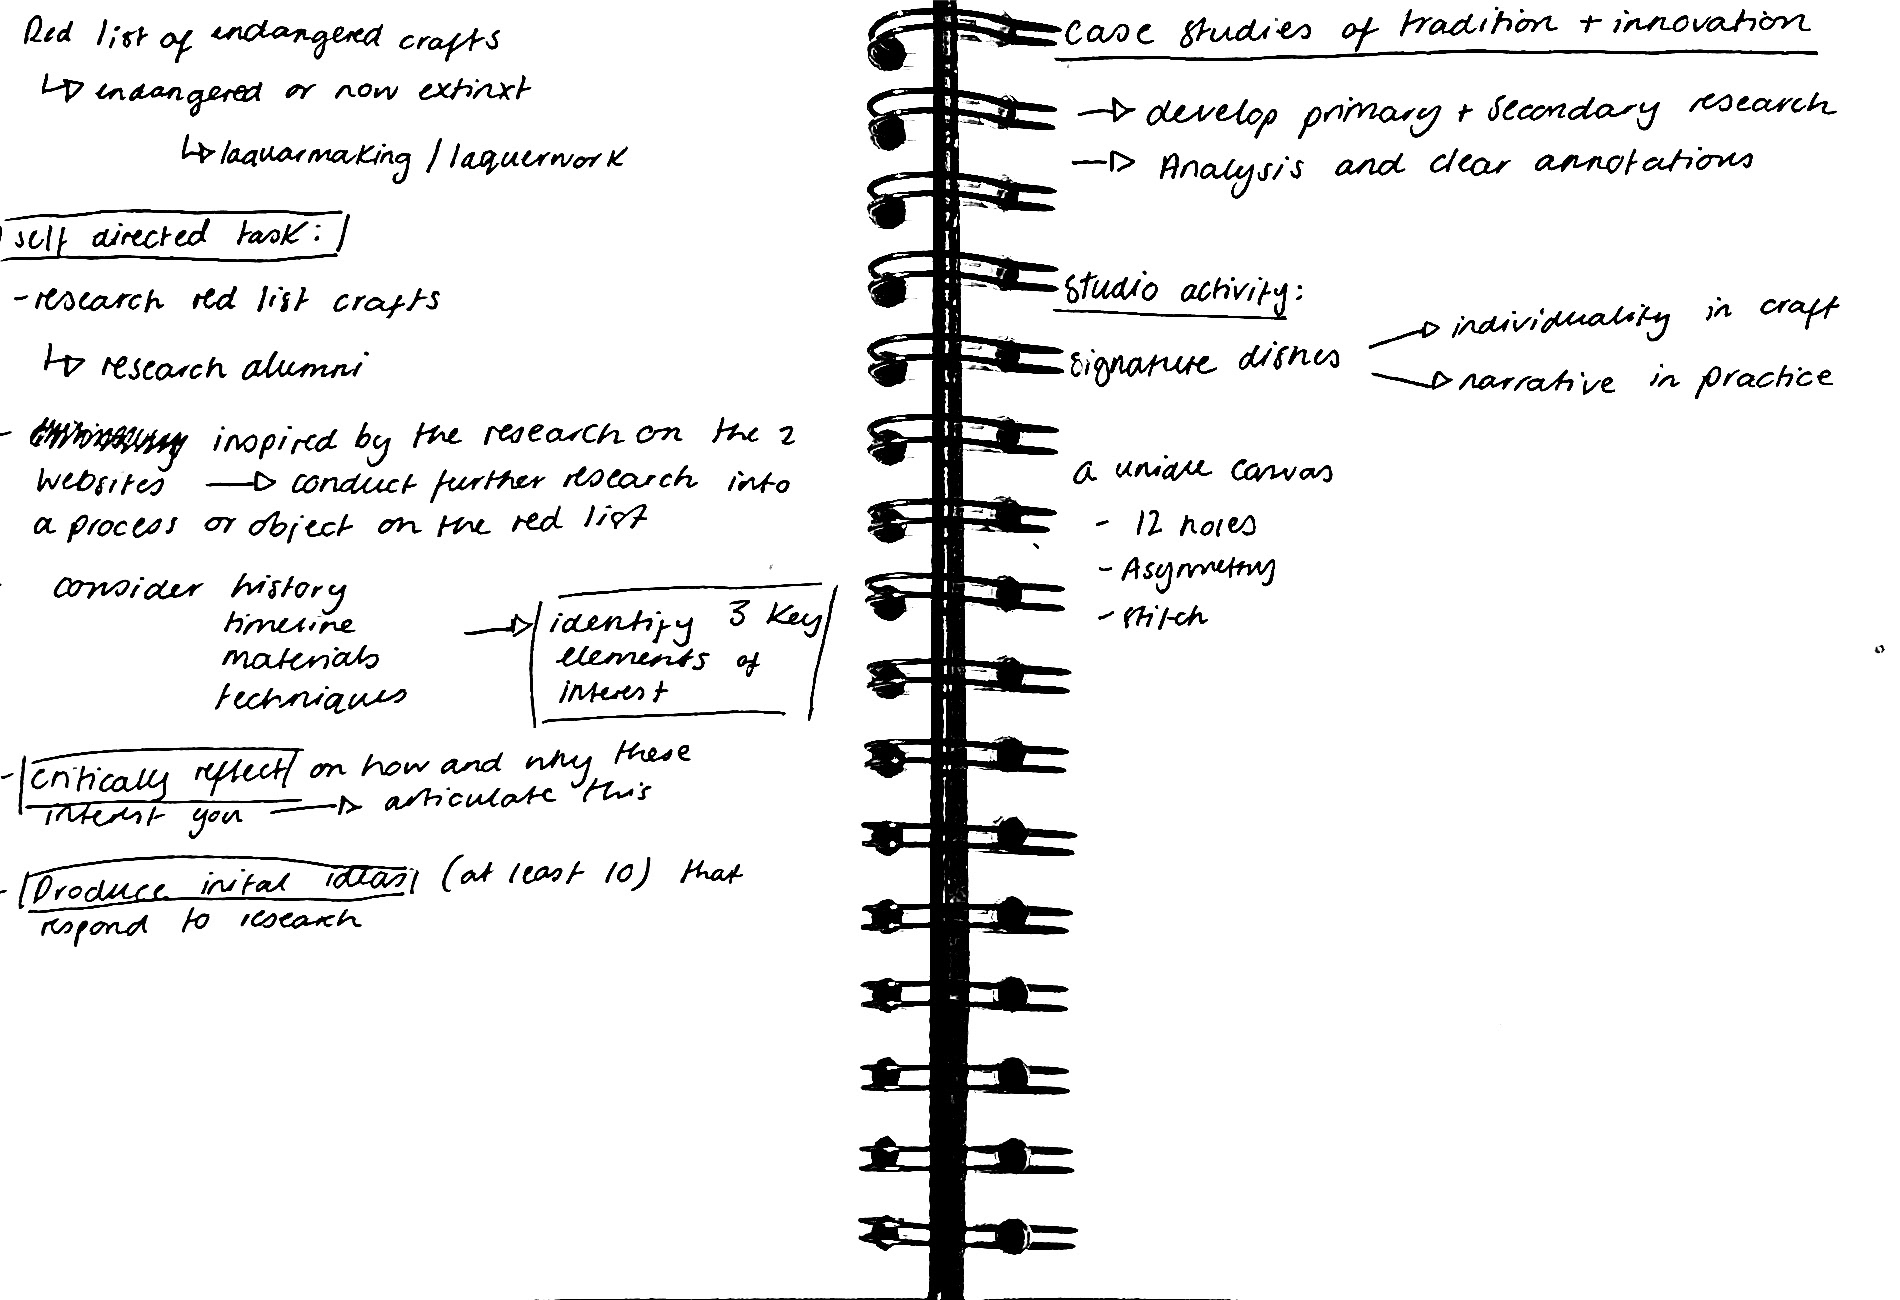 Red list of endangered crafts
↳ endangered or now extinxt
↳ laquarmaking / laquerwork
self directed task:
- research red list crafts
↳ research alumni
- inspired by the research on the 2
websites → conduct further research into
a process or object on the red list
consider history
timeline
materials
techniques
→ identify 3 key
elements of
interest
- critically reflect on how and why these
interest you → articulate this
- Produce inital ideas (at least 10) that
respond to research
case studies of tradition + innovation
→ develop primary + secondary research
→ Analysis and clear annotations
studio activity:
signature dishes
→ individuality in craft
→ narrative in practice
a unique canvas
- 12 holes
- Asymmetry
- stitch